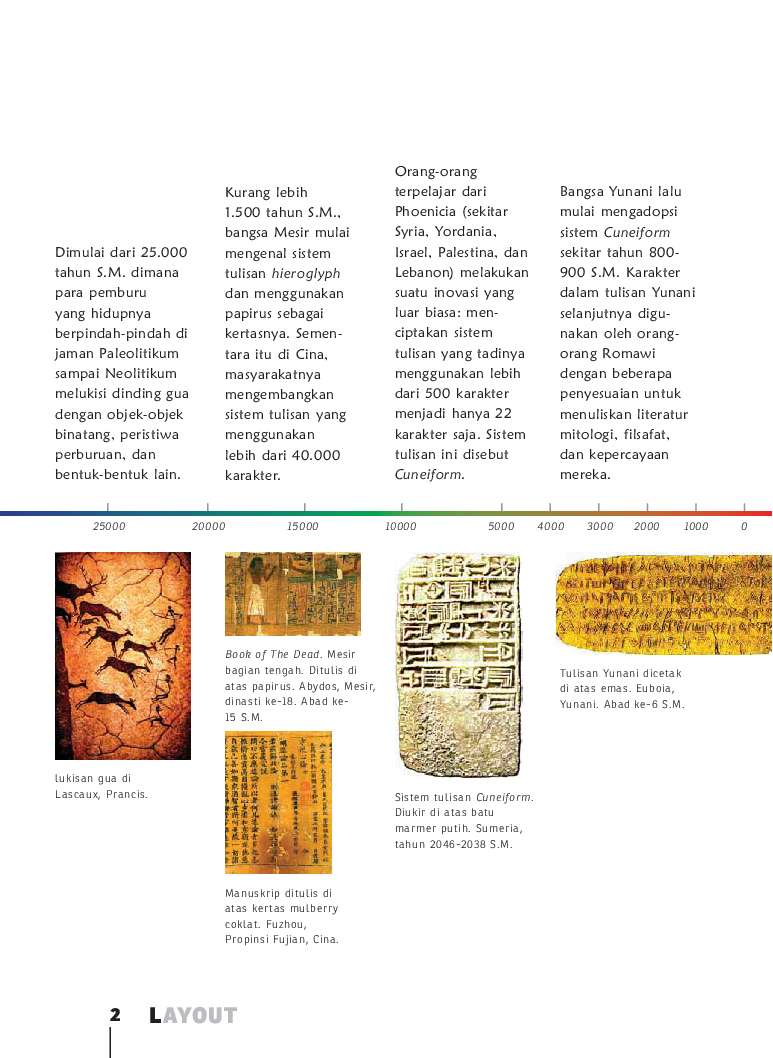 Dimulai dari 25.000
tahun S.M. dimana
para pemburu
yang hidupnya
berpindah-pindah di
jaman Paleolitikum
sampai Neolitikum
melukisi dinding gua
dengan objek-objek
binatang, peristiwa
perburuan, dan
bentuk-bentuk lain.
Kurang lebih
1.500 tahun S.M.,
bangsa Mesir mulai
mengenal sistem
tulisan hieroglyph
dan menggunakan
papirus sebagai
kertasnya. Semen-
tara itu di Cina,
masyarakatnya
mengembangkan
sistem tulisan yang
menggunakan
lebih dari 40.000
karakter.
Orang-orang
terpelajar dari
Phoenicia (sekitar
Syria, Yordania,
Israel, Palestina, dan
Lebanon) melakukan
suatu inovasi yang
luar biasa: men-
ciptakan sistem
tulisan yang tadinya
menggunakan lebih
dari 500 karakter
menjadi hanya 22
karakter saja. Sistem
tulisan ini disebut
Cuneiform.
Bangsa Yunani lalu
mulai mengadopsi
sistem Cuneiform
sekitar tahun 800-
900 S.M. Karakter
dalam tulisan Yunani
selanjutnya digu-
nakan oleh orang-
orang Romawi
dengan beberapa
penyesuaian untuk
menuliskan literatur
mitologi, filsafat,
dan kepercayaan
mereka.
25000 20000 15000 10000 5000 4000 3000 2000 1000 0
lukisan gua di
Lascaux, Prancis.
Book of The Dead. Mesir
bagian tengah. Ditulis di
atas papirus. Abydos, Mesir,
dinasti ke-18. Abad ke-
15 S.M.
Manuskrip ditulis di
atas kertas mulberry
coklat. Fuzhou,
Propinsi Fujian, Cina.
Sistem tulisan Cuneiform.
Diukir di atas batu
marmer putih. Sumeria,
tahun 2046-2038 S.M.
Tulisan Yunani dicetak
di atas emas. Euboia,
Yunani. Abad ke-6 S.M.
2 LAYOUT